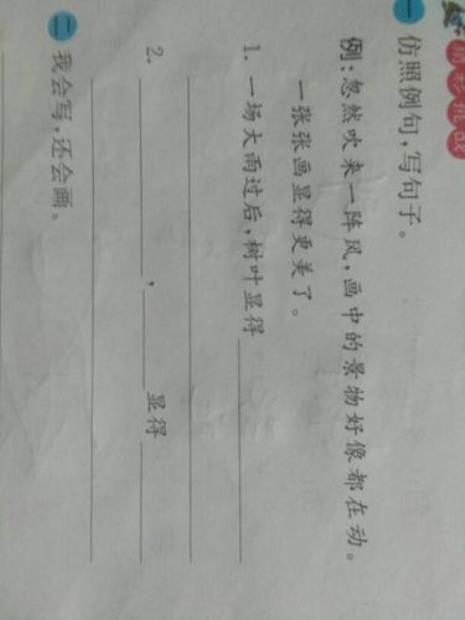 精彩挑战
一 仿照例句,写句子。
例:忽然吹来一阵风,画中的景物好像都在动。
一张张画显得更美了。
1. 一场大雨过后,树叶显得
2. , 显得
二 我会写,还会画。